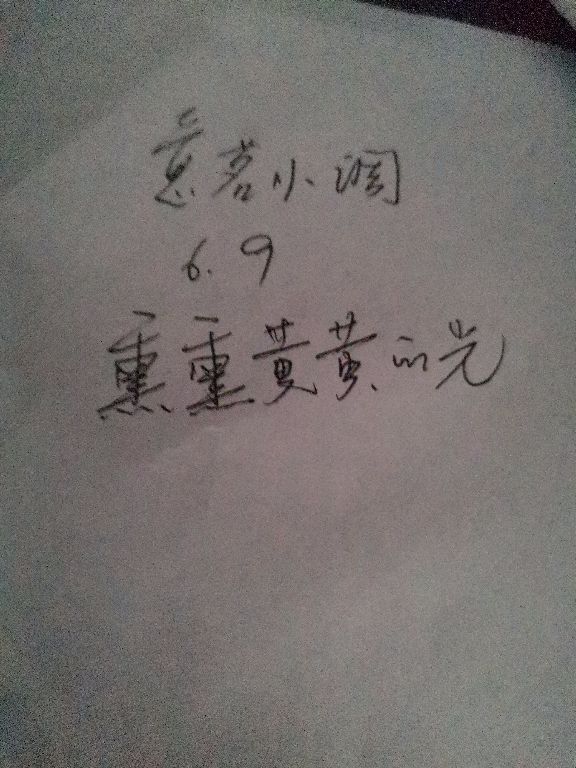 意茗小阁
6.9
熏熏黄黄的光